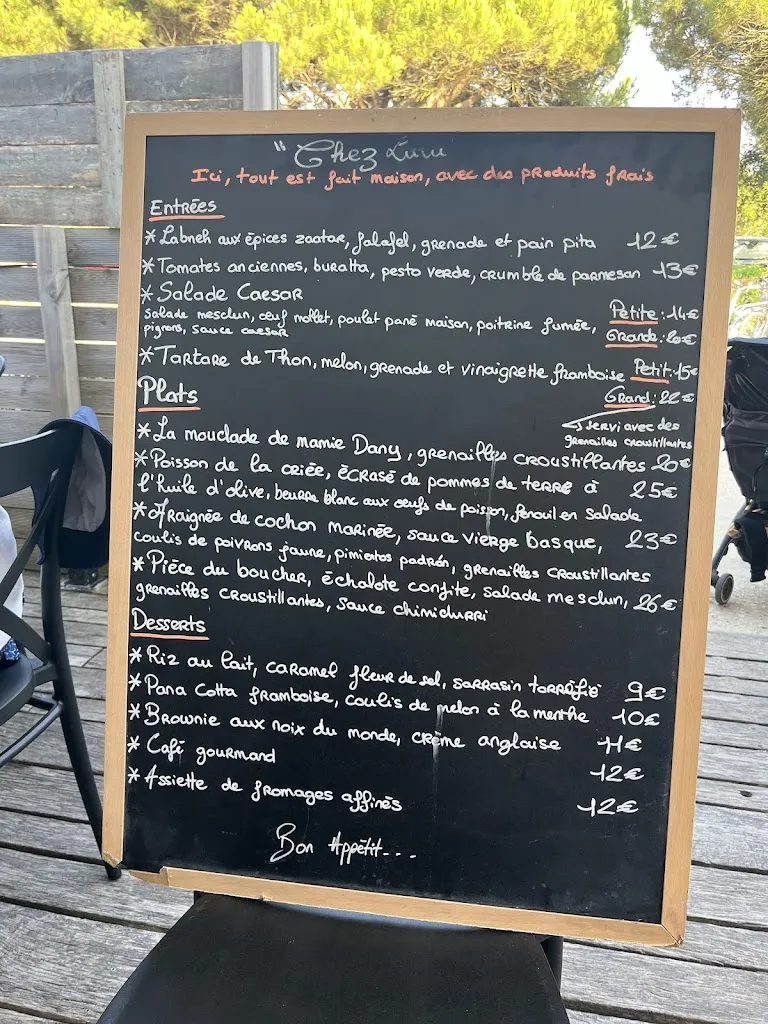 " Chez Lulu
Ici, tout est fait maison, avec des produits frais
Entrées
* Labneh aux épices zaatar, falafel, grenade et pain pita 12€
* Tomates anciennes, buratta, pesto verde, crumble de parmesan 13€
* Salade Caesar
salade mesclun, œuf mollet, poulet pané maison, poitrine fumée, Petite: 14€
pignons, sauce caesar Grande: 20€
* Tartare de Thon, melon, grenade et vinaigrette framboise Petit: 15€
Grand: 22€
servi avec des
grenailles croustillantes
Plats
* La mouclade de mamie Dany, grenailles croustillantes 20€
* Poisson de la criée, écrasé de pommes de terre à 25€
l'huile d'olive, beurre blanc aux oeufs de poisson, fenouil en salade
* Araignée de cochon marinée, sauce vierge basque, 23€
coulis de poivrons jaune, pimientos padrón, grenailles croustillantes
* Pièce du boucher, échalote confite, salade mesclun, 26€
grenailles croustillantes, sauce chimichurri
Desserts
* Riz au lait, caramel fleur de sel, sarrasin torréfié 9€
* Pana Cotta framboise, coulis de melon à la menthe 10€
* Brownie aux noix du monde, crème anglaise 11€
* Café gourmand 12€
* Assiette de fromages affinés 12€
Bon Appétit...